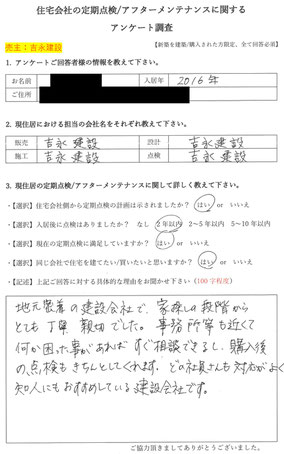 住宅会社の定期点検/アフターメンテナンスに関する
アンケート調査
売主:吉永建設
【新築を建築/購入された方限定、全て回答必須】
1. アンケートご回答者様の情報を教えて下さい。
お名前 入居年 2016年
ご住所
2. 現住居における担当の会社名をそれぞれ教えて下さい。
販売 吉永建設 設計 吉永建設
施工 吉永建設 点検 吉永建設
3. 現住居の定期点検/アフターメンテナンスに関して詳しく教えて下さい。
・【選択】住宅会社側から定期点検の計画は示されましたか? はい or いいえ
・【選択】入居後に点検はありましたか? なし 2年以内 2〜5年以内 5〜10年以内
・【選択】現在の定期点検に満足していますか? はい or いいえ
・【選択】同じ会社で住宅を建てたい/買いたいと思いますか? はい or いいえ
・【記述】上記ご回答に対する具体的な理由をお聞かせ下さい(100字程度)
地元密着の建設会社で、家探しの段階から
とても丁寧、親切でした。事務所等も近くて
何か困った事があればすぐ相談できるし、購入後
の点検もきちんとしてくれます。どの社員さんも対応がよく
知人にもおすすめしている建設会社です。
ご協力頂きましてありがとうございました。